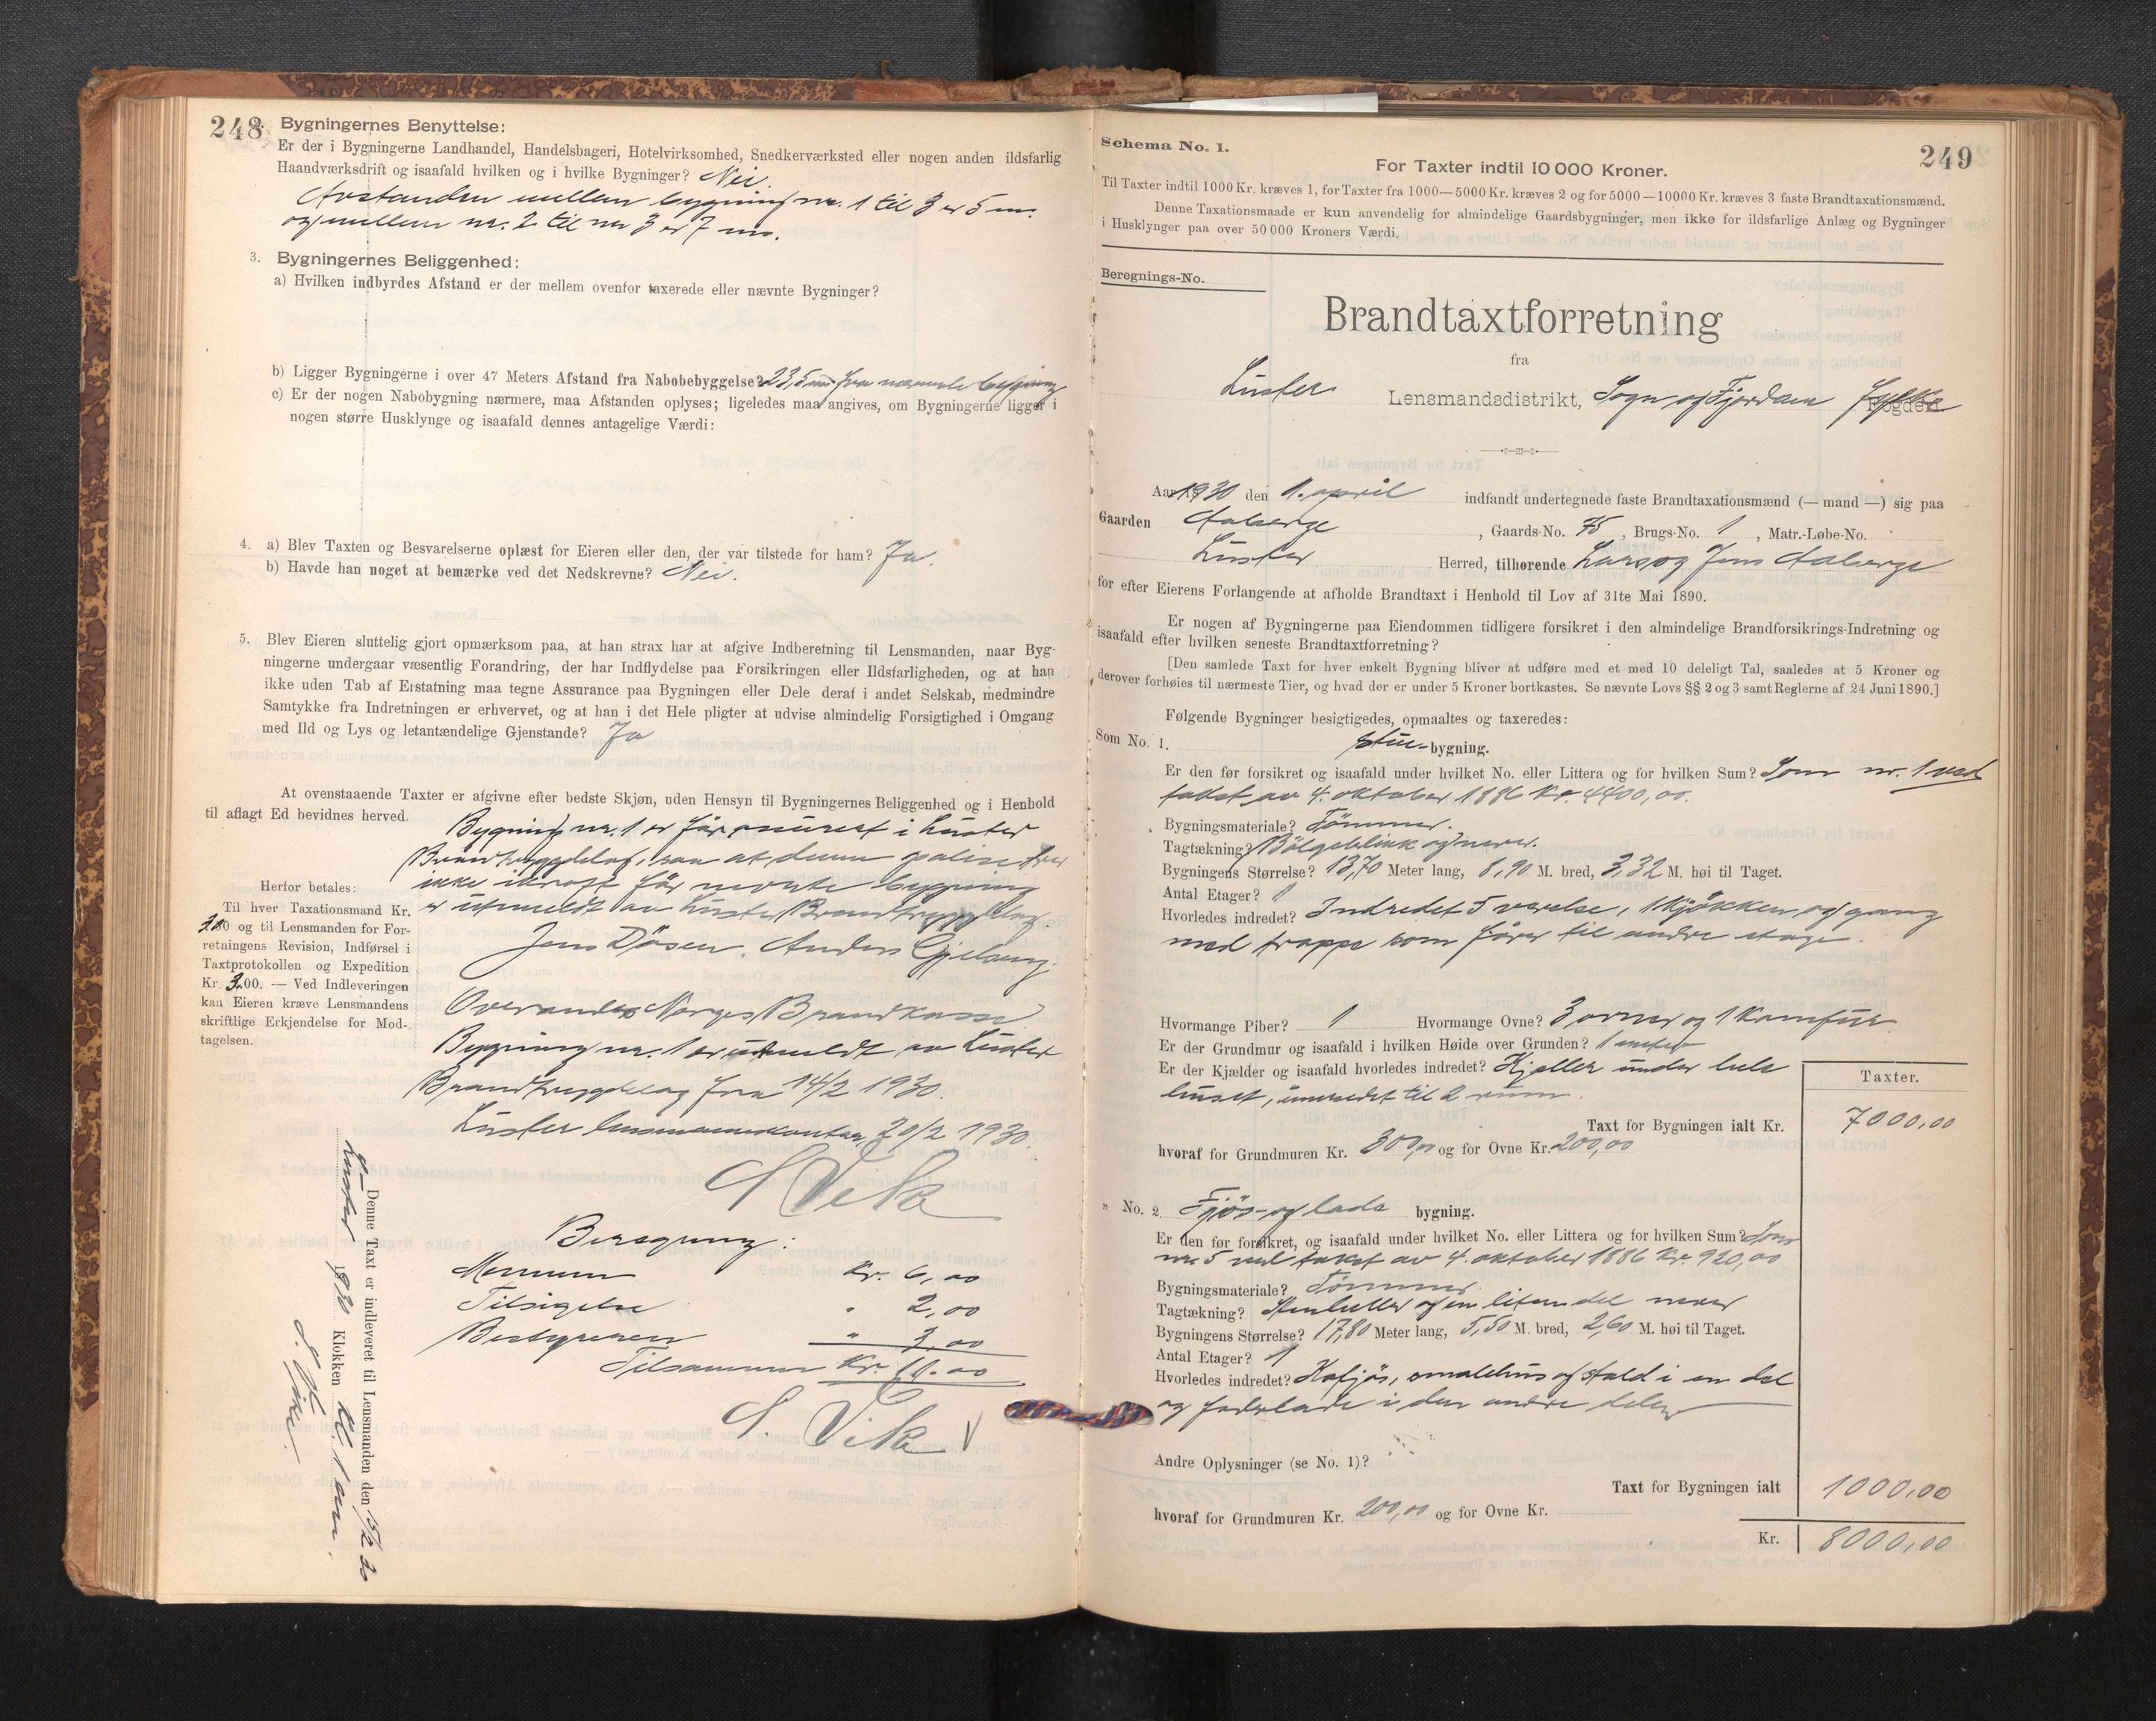 248
Bygningernes Benyttelse:
Er der i Bygningerne Landhandel, Handelsbageri, Hotelvirksomhed, Snedkerværksted eller nogen anden ildsfarlig
Haandværksdrift og isaafald hvilken og i hvilke Bygninger? Nei.
Avstanden mellem bygning nr. 1 til 3 er 5 m.
og mellem nr. 2 til nr 3 er 7 m.
3. Bygningernes Beliggenhed:
a) Hvilken indbyrdes Afstand er der mellem ovenfor taxerede eller nævnte Bygninger?
b) Ligger Bygningerne i over 47 Meters Afstand fra Nabobebyggelse? 23,5 m fra nærmeste bygning
c) Er der nogen Nabobygning nærmere, maa Afstanden oplyses; ligeledes maa angives, om Bygningerne ligger i
nogen større Husklynge og isaafald dennes antagelige Værdi:
4. a) Blev Taxten og Besvarelserne oplæst for Eieren eller den, der var tilstede for ham? Ja.
b) Havde han noget at bemærke ved det Nedskrevne? Nei.
5. Blev Eieren sluttelig gjort opmærksom paa, at han strax har at afgive Indberetning til Lensmanden, naar Byg-
ningerne undergaar væsentlig Forandring, der har Indflydelse paa Forsikringen eller Ildsfarligheden, og at han
ikke uden Tab af Erstatning maa tegne Assurance paa Bygningen eller Dele deraf i andet Selskab, medmindre
Samtykke fra Indretningen er erhvervet, og at han i det Hele pligter at udvise almindelig Forsigtighed i Omgang
med Ild og Lys og letantændelige Gjenstande? Ja
At ovenstaaende Taxter er afgivne efter bedste Skjøn, uden Hensyn til Bygningernes Beliggenhed og i Henhold
til aflagt Ed bevidnes herved.
Bygning nr. 1 er før assurert i Luster
Brandtrygdelag, saa at denne polise trær
ikke ikraft før nevnte bygning
er utmeldt av Luster Brandtrygdelag.
Jens Døsen. Anders Gjelsung.
Herfor betales:
Til hver Taxationsmand Kr.
3.00 og til Lensmanden for For-
retningens Revision, Indførsel i
Taxtprotokollen og Expedition
Kr. 3.00. — Ved Indleveringen
kan Eieren kræve Lensmandens
skriftlige Erkjendelse for Mod-
tagelsen.
Oversendes Norges Brandkasse
Bygning nr. 1 er utmeldt av Luster
Brandtrygdelag fra 14/2 1930.
Luster lensmannskontor, 20/2 1930.
S Vik
Beregning:
Mennene Kr. 6,00
Tilsigelse " 2,00
Bestyreren " 3,00
Tilsammen Kr. 11.00
S. Vik
Denne Taxt er indleveret til Lensmanden den 15/2
Luster 1930 Klokken
S. Vik.
Schema No. 1.
249
For Taxter indtil 10 000 Kroner.
Til Taxter indtil 1000 Kr. kræves 1, for Taxter fra 1000—5000 Kr. kræves 2 og for 5000—10000 Kr. kræves 3 faste Brandtaxationsmænd.
Denne Taxationsmaade er kun anvendelig for almindelige Gaardsbygninger, men ikke for ildsfarlige Anlæg og Bygninger
i Husklynger paa over 50 000 Kroners Værdi.
Beregnings-No.
Brandtaxtforretning
fra
Luster Lensmandsdistrikt, Sogn og Fjordane Fylke Fogderi
Aar 1930 den 1. april indfandt undertegnede faste Brandtaxationsmænd (— mand —) sig paa
Gaarden Aaberge, Gaards-No. 75, Brugs-No. 1, Matr.-Løbe-No.
Luster Herred, tilhørende Lars og Jens Aaberge
for efter Eierens Forlangende at afholde Brandtaxt i Henhold til Lov af 31te Mai 1890.
Er nogen af Bygningerne paa Eiendommen tidligere forsikret i den almindelige Brandforsikrings-Indretning og
isaafald efter hvilken seneste Brandtaxtforretning?
[Den samlede Taxt for hver enkelt Bygning bliver at udføre med et med 10 deleligt Tal, saaledes at 5 Kroner og
derover forhøies til nærmeste Tier, og hvad der er under 5 Kroner bortkastes. Se nævnte Lovs §§ 2 og 3 samt Reglerne af 24 Juni 1890.]
Følgende Bygninger besigtigedes, opmaaltes og taxeredes:
Som No. 1. Stue-bygning.
Er den før forsikret og isaafald under hvilket No. eller Littera og for hvilken Sum? Som nr. 1 ved
takst av 4. oktober 1886 Kr. 4400,00.
Bygningsmateriale? Tømmer.
Tagtækning? Bølgeblikk og never.
Bygningens Størrelse? 13,70 Meter lang, 8,90 M. bred, 3,32 M. høi til Taget.
Antal Etager? 1
Hvorledes indredet? Indredet 5 værelse, 1 kjøkken og gang
med trappe som fører til andre etage.
Hvormange Piber? 1 Hvormange Ovne? 3 ovner og 1 komfur
Er der Grundmur og isaafald i hvilken Høide over Grunden? 1 meter
Er der Kjælder og isaafald hvorledes indredet? Kjeller under hele
huset, innredet til 2 rum.
Taxter.
Taxt for Bygningen ialt Kr. 7000,00
hvoraf for Grundmuren Kr. 300,00 og for Ovne Kr. 200,00
" No. 2. Fjøs- og lade bygning.
Er den før forsikret, og isaafald under hvilket No. eller Littera og for hvilken Sum? Som
nr. 5 ved takst av 4. oktober 1886 Kr. 920,00
Bygningsmateriale? Tømmer.
Tagtækning? Stenheller og en liten del never
Bygningens Størrelse? 17,80 Meter lang, 5,50 M. bred, 2,60 M. høi til Taget.
Antal Etager? 1
Hvorledes indredet? Kufjøs, smalehus og stald i en del
og forlade i den andre delen
Andre Oplysninger (se No. 1)?
Taxt for Bygningen ialt 1000,00
hvoraf for Grundmuren Kr. 200,00 og for Ovne Kr.
Kr. 8000,00